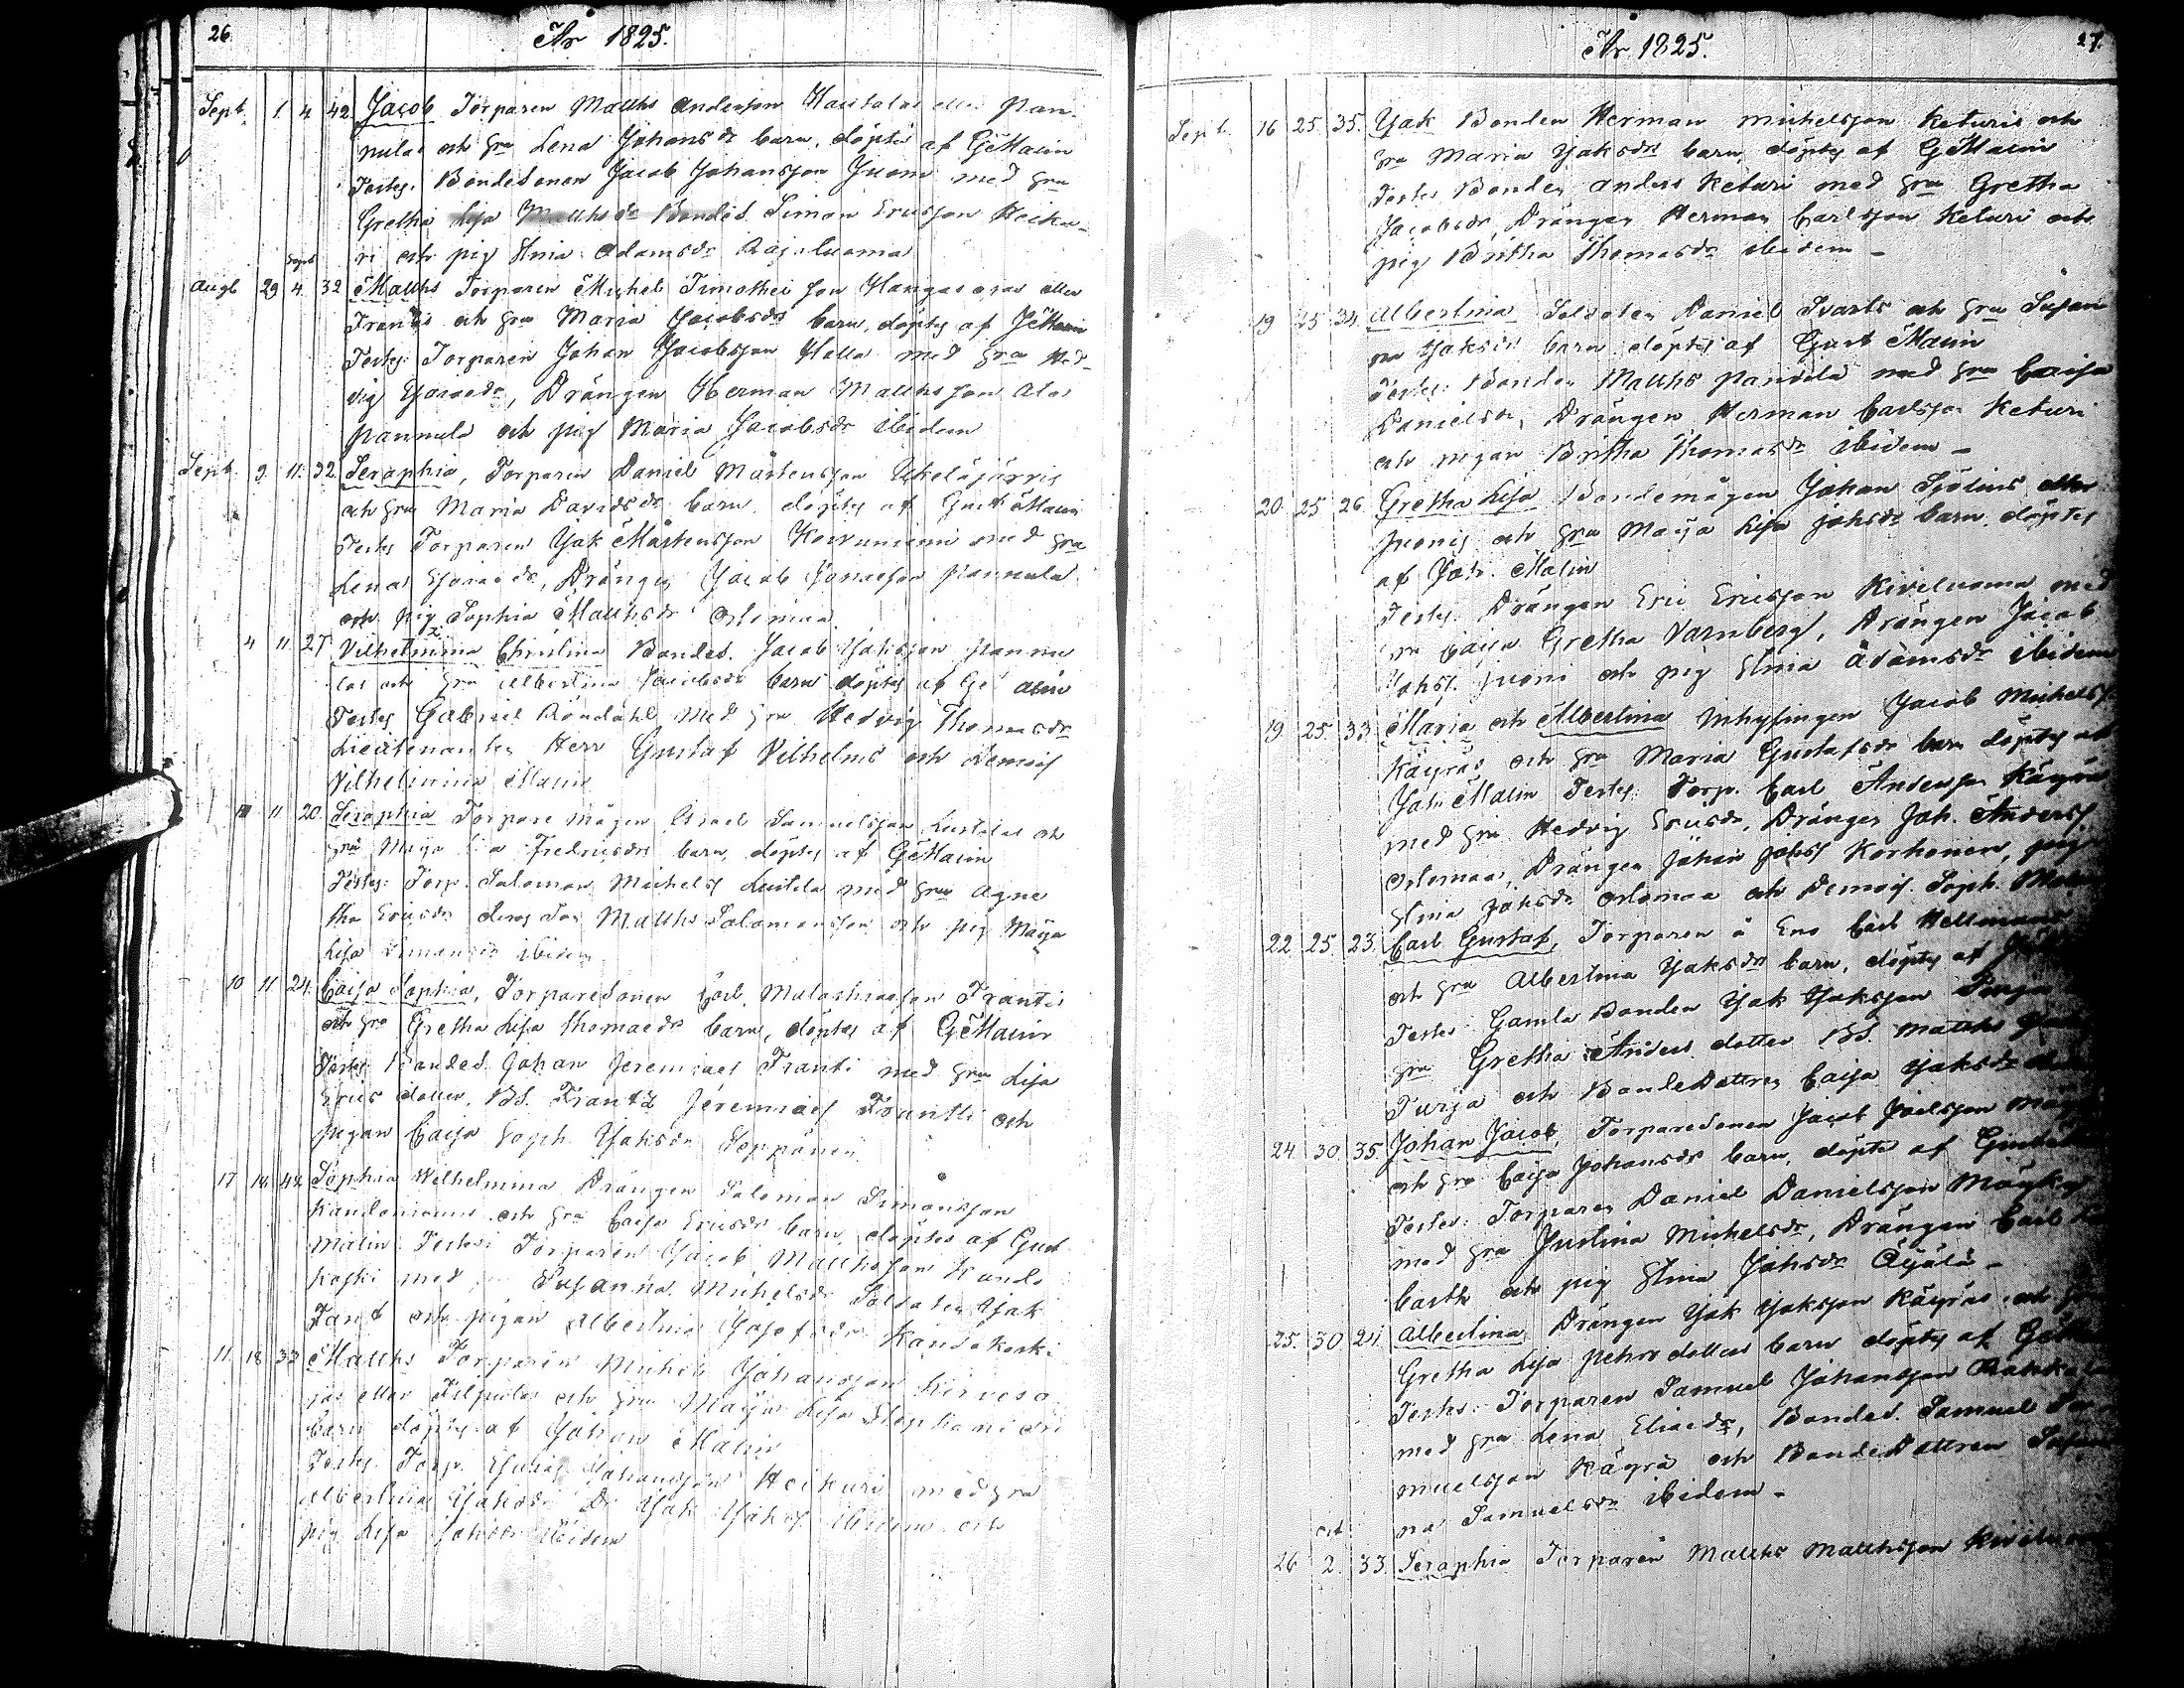 26.
År 1825.
Sept. 1. 4. 42. Jacob Torparen Matths Andersson Hautalas eller Pan-
nulas och hru Lena Johansdr barn, döpte af GMalin
Testes: Bondesonen Jacob Johansson Juoni med hru
Gretha Lisa Matthsdr Bondes. Simon Ericsson Heiku-
ri och pig Stina Adamsdr
Sept
Augt 29 4. 32 Matths Torparen Michel Timothei son eller
Trantis och hru Maria Jacobsdrs barn, döptes af JMalin
Testes: Torparen Johan Jacobsson Halla med hru Hed-
vig, Drängen Herman Matthsson Ala
Pannula och pig Maria Jacobsdr ibidem
Sept. 9. 11. 32. Seraphia, Torparen Daniel Mårtensson
och hru Maria Davidsdr barn, döptes af Gust Malin
Testes Torparen Isak Mårtensson Koivuniemi med hru
Lena, Drängen Jacob Pannula
och pig Sophia Matthsdr Orlomaa
4 11. 27 Vilhelmina Christina Bondes. Jacob Isaksson Pannu
las och hru Albertina Jacobsdr barn döptes af
Testes Gabriel Röndahl med hru Hedvig Thomasdr
Lieutenanten Herr Gustaf Vilhelms och Demois
Vilhelmina Malin
11 20. Seraphia Torpare mågen Israel Samuelsson och
hru Maja Fredricsdrs barn, döptes af GMalin
Testes: Torp. Salomon Michelss Luslila med hru Agne
tha Ericsdr Matths Salomonsson och pig Maija
Lisa Simonsdr ibidem
10 11 24. Caisa Sophia, Torparesonen Carl Malachiasson Trantis
och hru Gretha Lisa Thomaedr barn, döptes af GMalin
Testes: Bondes. Johan Jeremiaes Tranti med hru Lisa
Erics dotter, BS. Frantz Jeremiaes Trantti och
pigan Caisa Soph. Isaksdr Seppänen
17 18 42. Sophia Wilhelmina Drängen Salomon Simonsson
och hru Caisa Ericsdr barn, döptes af Gust
Malin. Testes: Torparen Jacob Matthsson Kando
koski med Susanna Michelsdr Soldaten Isak
och pigan Albertina Josefsdr Kandokoski
11. 18 33 Matths Torparen Michel Johansson Kirveso
jas eller och hru Maija Lisa Stephani dri
barn döptes af Johan Malin
Testes: Torp. Johansson Heikuri med hru
Albertina Isaksdr Dr Isak Isakss. ibidem och
pig Lisa Isaksdr ibidem
År 1825.
27.
Sept. 16 25 35. Isak Bonden Herman Michelsson Keturis och
hru Maria Isaksdrs barn, döptes af GMalin
Testes Bonden Anders Keturi med hru Gretha
Jacobsdr, Drängen Herman Carlsson Keturi och
pig Britha Thomasdr ibidem -
19 25 34. Albertina Soldaten Daniel Svarts och hru Susan
na Isaksdr barn döptes af Gust Malin
Testes: Bonden Matths Panvila med hru Caisa
Danielsdr, Drängen Herman Carlsson Keturi
och pigan Britha Thomasdr ibidem -
20. 25 26 Gretha Lisa Bondemågen Johan Sjölins eller
Juonis och hru Maija Lisa Johsdr barn, döptes
af Joh. Malin
Testes: Drängen Eric Ericsson Kiviluoma med
hru Caisa Gretha Varnberg, Drängen Jacob
Johss. Juoni och pig Stina Adamsdr ibidem
19 25. 33 Maria och Albertina Inhysingen Jacob Michelss
Käyräs och hru Maria Gustafsdr barn döptes af
Joh Malin Testes: Torp. Carl Andersson Käyrä
med hru Hedvig Ericsdr, Drängen Joh. Anderss
Orlomaa, Drängen Johan Johss Korhonen, pig
Stina Johsdr Orlomaa och Demois. Soph. Malin
22 25. 23. Carl Gustaf, Torparen å Eno Carl Hellmans
och hru Albertina Isaksdrs barn, döptes af
Testes: Gamla Bonden Isak Isaksson
hru Gretha Anders dotter BS. Matths
Turja och BondeDottren Caisa Isaksdr
24 30 35. Johan Jacob, Torparesonen Jacob Joelsson
och hru Caisa Johansdr barn, döpte af
Testes: Torparen Daniel Danielsson
med hru Justina Michelsdr, Drängen Carl
Carth och pig Stina Johsdr Äijälä -
25. 30 21 Albertina Drängen Isak Isaksson Käyräs och hru
Gretha Lisa Pehrs dotters barn döptes af GMalin
Testes: Torparen Samuel Johansson
med hru Lena Eliaedr, Bondes. Samuel Sa
muelsson Käyrä och BondeDottren Susan
na Samuelsdr ibidem -
Oct
26 2. 33. Seraphia Torparen Matths Matthsson Kiviluoma